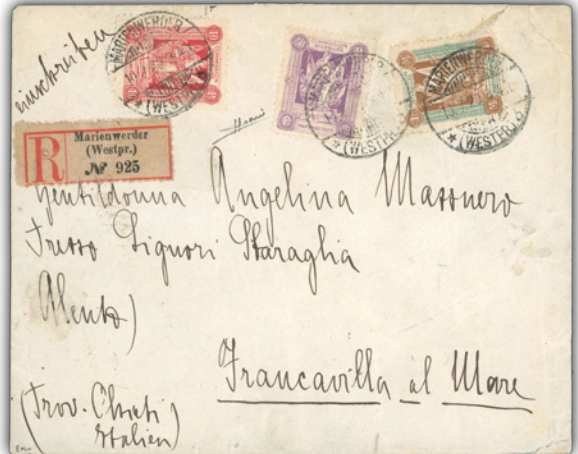 einschreiben
MARIENWERDER
*(WESTPR.)
MARIENWERDER
*(WESTPR.)
MARIENWERDER
*(WESTPR.)
R
Marienwerder
(Westpr.)
№ 925
Gentildonna Angelina Massnero
Presso Liguori Staraglia
Alento)
Francavilla al Mare
(Prov. Chieti
Italien)